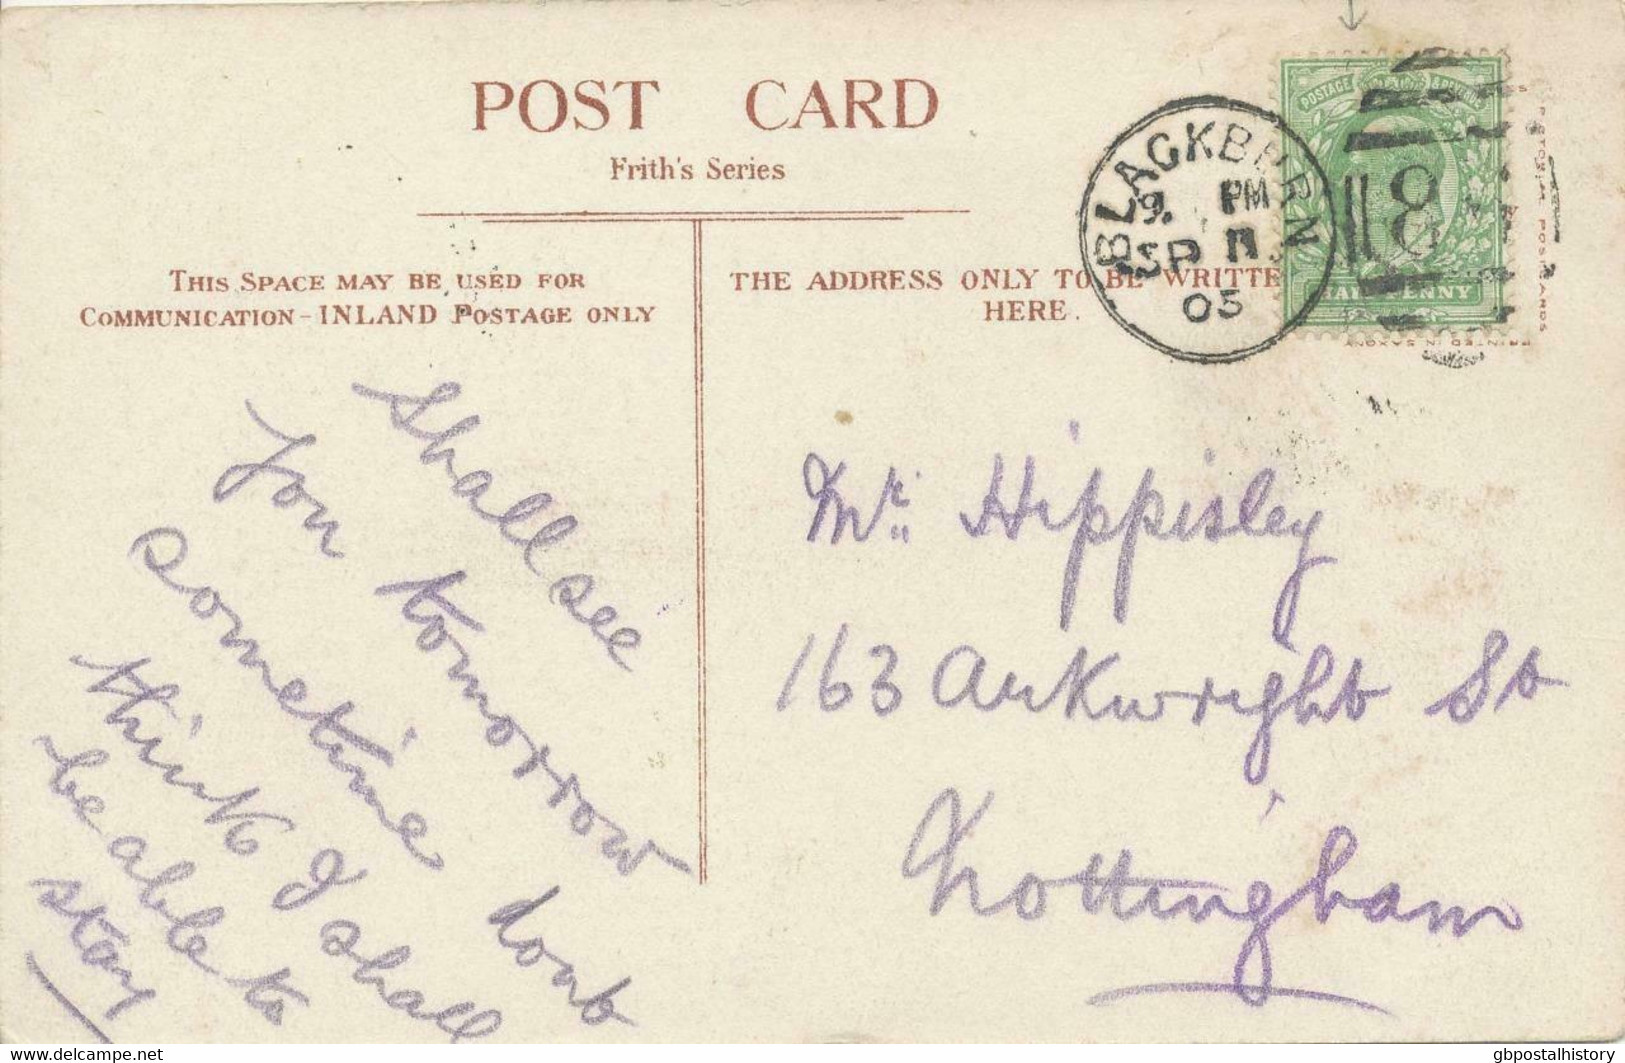 POST CARD
Frith's Series
THIS SPACE MAY BE USED FOR
COMMUNICATION - INLAND POSTAGE ONLY
THE ADDRESS ONLY TO BE WRITTE
HERE.
BLACKBURN
9. PM
SP 11
05
POSTAGE & REVENUE
HALFPENNY
18
PRINTED IN SAXONY
Shall see
you tomorrow
sometime dont
think I shall
be able to
stay
Mr. Hippisley
163 Arkwright St
Nottingham
www.delcampe.net
gbpostalhistory